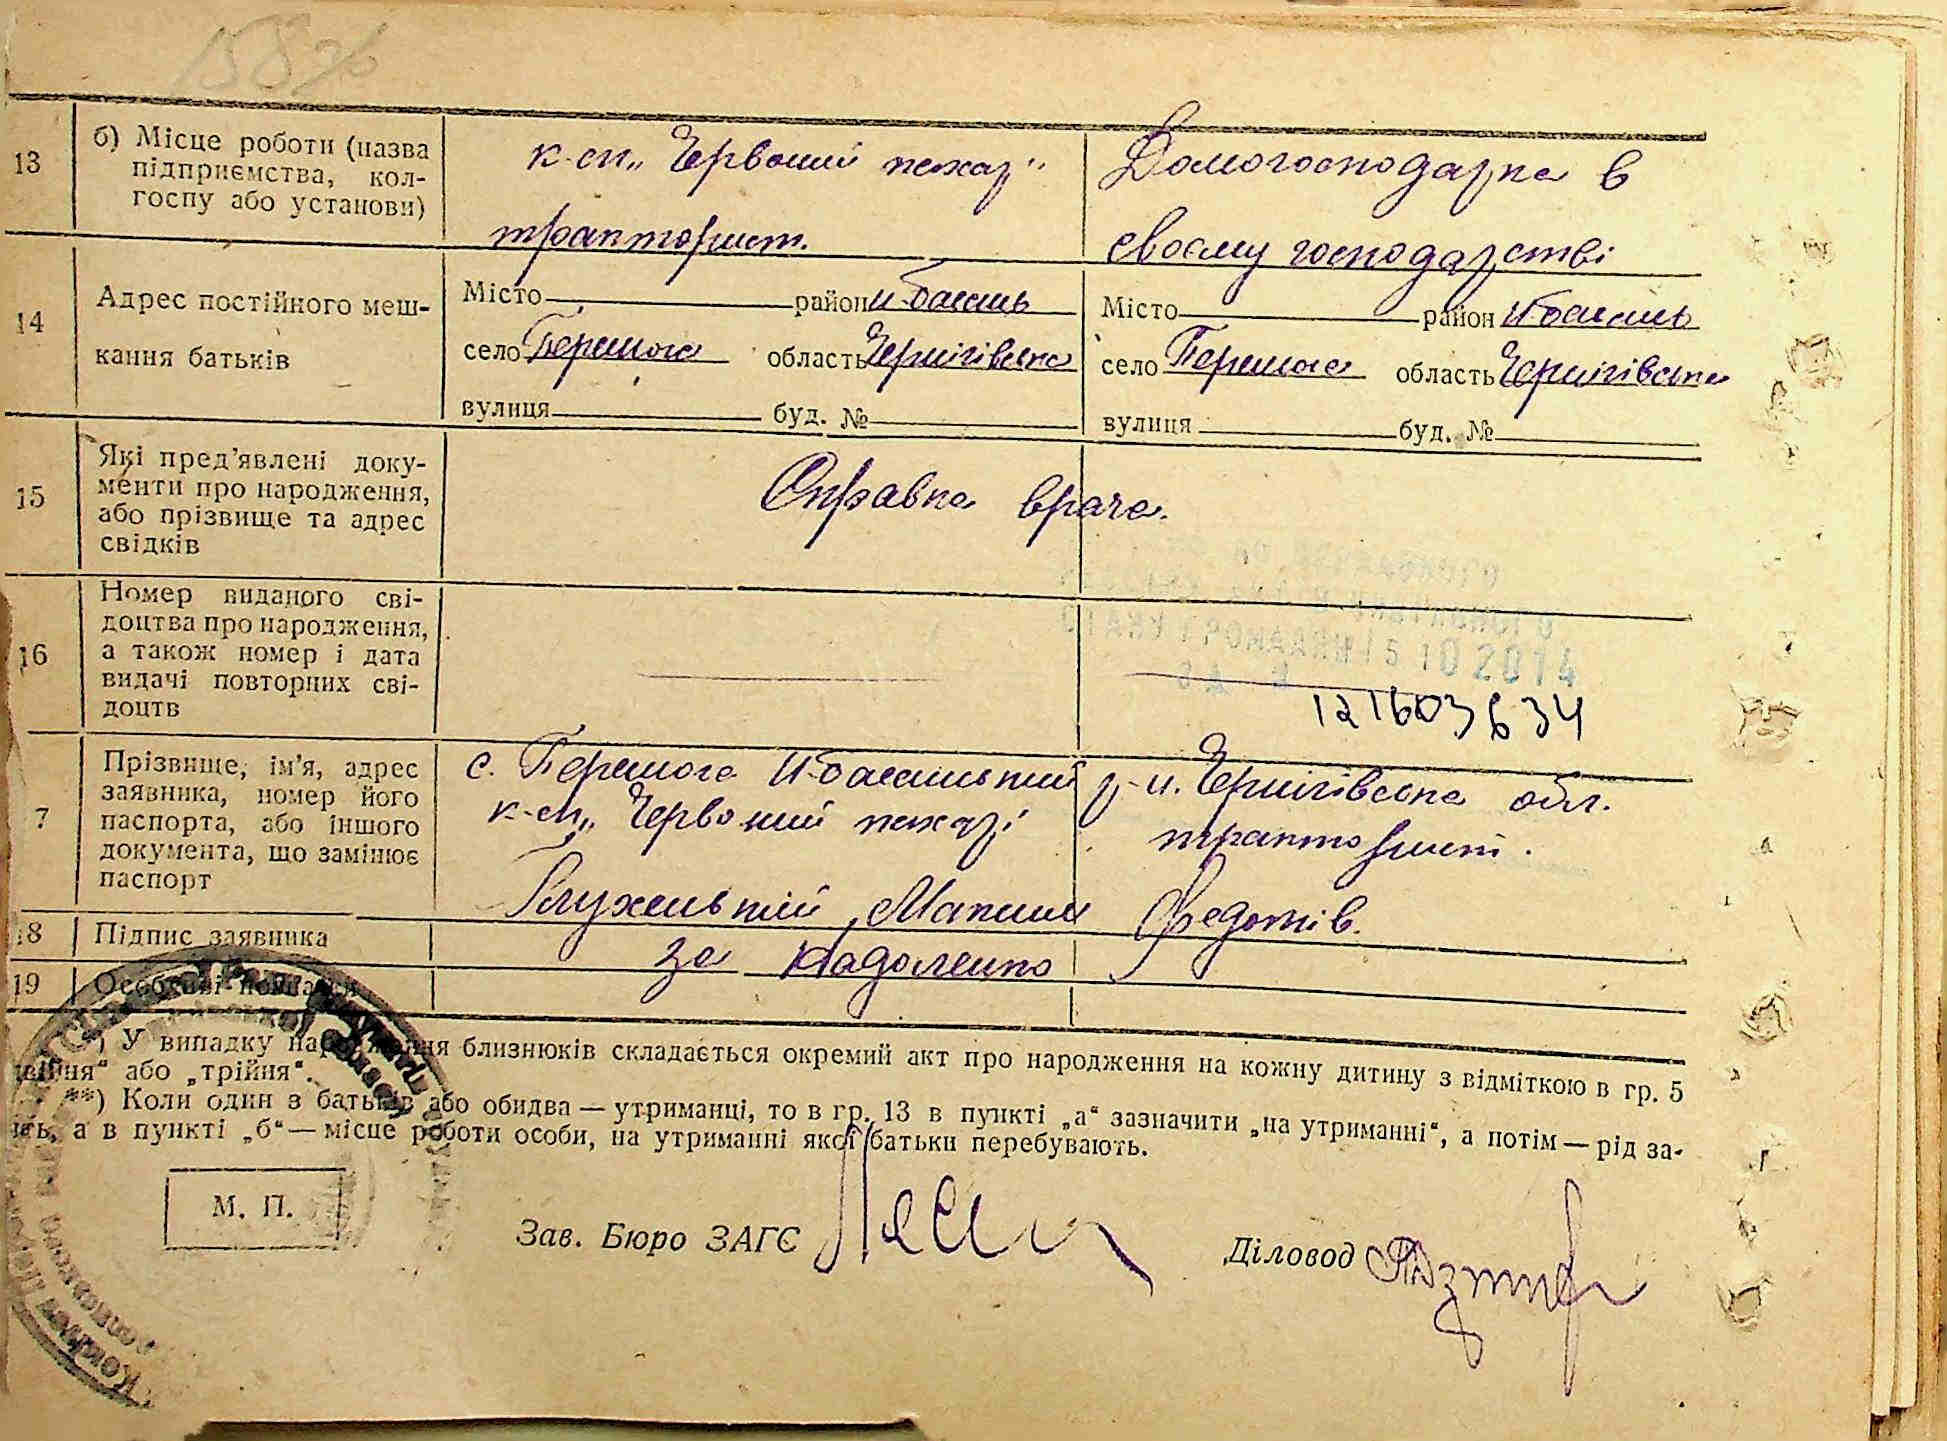 13
б) Місце роботи (назва
підприємства, кол-
госпу або установи)
к-сп „Червоний пахар"
тракторист.
Домогосподарка в
своєму господарстві
14
Адрес постійного меш-
кання батьків
Місто район Н-басань
село Перемога область Чернігівська
вулиця буд. №
Місто район Н-басань
село Перемога область Чернігівська
вулиця буд. №
15
Які пред'явлені доку-
менти про народження,
або прізвище та адрес
свідків
Справка врача.
16
Номер виданого сві-
доцтва про народження,
а також номер і дата
видачі повторних сві-
доцтв
СТАНУ ГРОМАДЯН 15 10 2014
7
Прізвище, ім'я, адрес
заявника, номер його
паспорта, або іншого
документа, що замінює
паспорт
с. Перемога Н-басанський р-н. Чернігівська обл.
к-сп „Червоний пахар" тракторист.
Федотів.
18
Підпис заявника
за
19
Особливі
У випадку народження близнюків складається окремий акт про народження на кожну дитину з відміткою в гр. 5
або „трійня".
**) Коли один з батьків або обидва — утриманці, то в гр. 13 в пункті „а" зазначити „на утриманні", а потім — рід за-
а в пункті „б" — місце роботи особи, на утриманні якої батьки перебувають.
М. П.
Зав. Бюро ЗАГС
Діловод